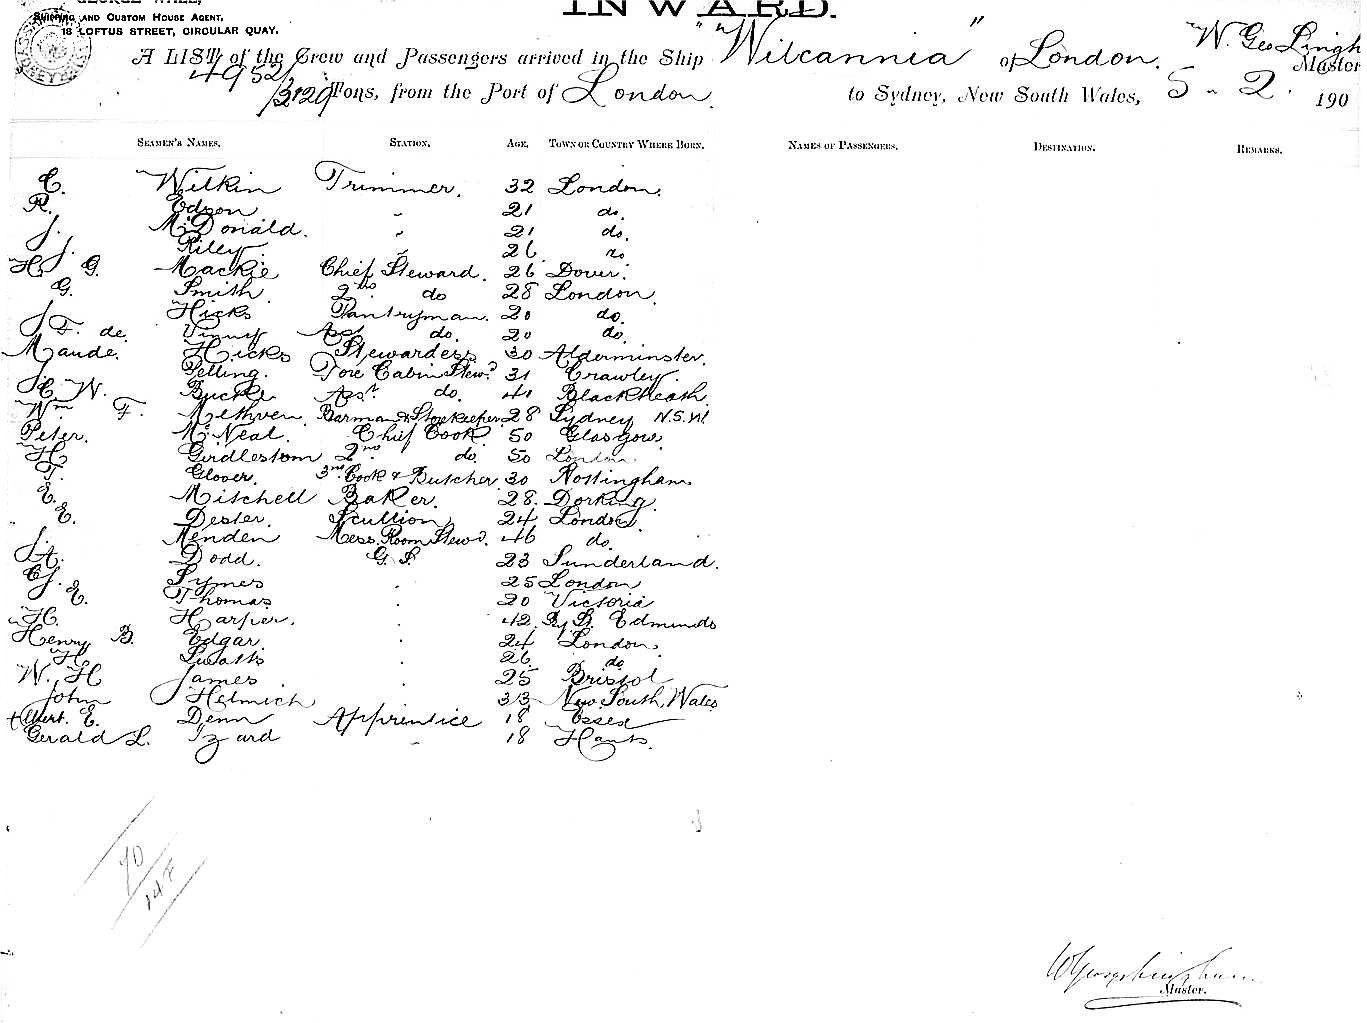 GEORGE WALL,
SHIPPING AND CUSTOM HOUSE AGENT,
18 LOFTUS STREET, CIRCULAR QUAY.
INWARD.
A LIST of the Crew and Passengers arrived in the Ship "Wilcannia" of London. W. Geo Lingh
Master
4952/3129 Tons, from the Port of London to Sydney, New South Wales, 5 - 2. 190
SEAMEN'S NAMES. STATION. AGE. TOWN OR COUNTRY WHERE BORN. NAMES OF PASSENGERS. DESTINATION. REMARKS.
C. Wilkin Trimmer. 32 London.
R. Edson " 21 do.
J. McDonald. " 21 do.
J. Riley. " 26 do
H. G. Mackie Chief Steward. 26 Dover.
G. Smith 2nd. do 28 London.
J. Hicks Pantryman. 20 do.
F. de. Vinny Asst do. 20 do.
Maude. Hicks Stewardess 30 Alderminster.
J. Pelling. Fore Cabin Stewd 31 Crawley.
C. W. Buckle Asst. do. 41 Blackheath.
Wm F. Methven Barman & Storekeeper 28 Sydney N.S.W.
Peter. McNeal. Chief Cook 50 Glasgow.
H Girdlestom 2nd. do. 50 London
T. Glover. 3rd Cook & Butcher. 30 Nottingham
E. Mitchell Baker. 28. Dorking.
E. Dester. Scullion 24 London
J. Menden Mess. Room Stewd. 46 do.
J. A. Dodd. G. S. 23 Sunderland.
C. J. Symes " 25 London
E. Thomas " 20 Victoria
H. Harper. " 42. By St. Edmunds
Henry B. Edgar. " 24 London.
H. " 26 do
W. H James " 25 Bristol
John Helmich 33 New South Wales
Albert. E. Denn Apprentice 18 Essex
Gerald L. Izard " 18 Hants.
70
148
W George Lingham
Master.